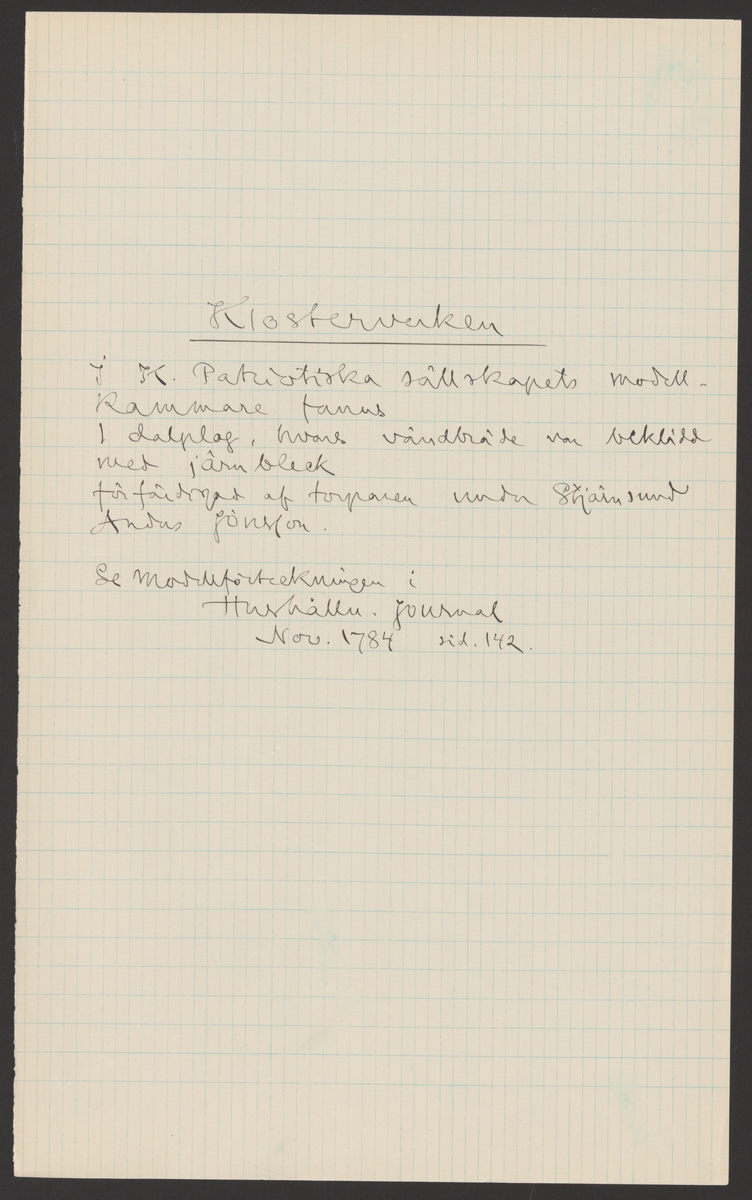 Klosterverken
I K. Patriotiska sällskapets modell-
kammare fanns
1 dalplog, hvars vändbräde var beklädd
med järnbleck
förfärdigad af torparen under Stjärnsund
Anders Jönsson.
Se Modellförteckningen i
Hushålln. Journal
Nov. 1784 sid. 142.